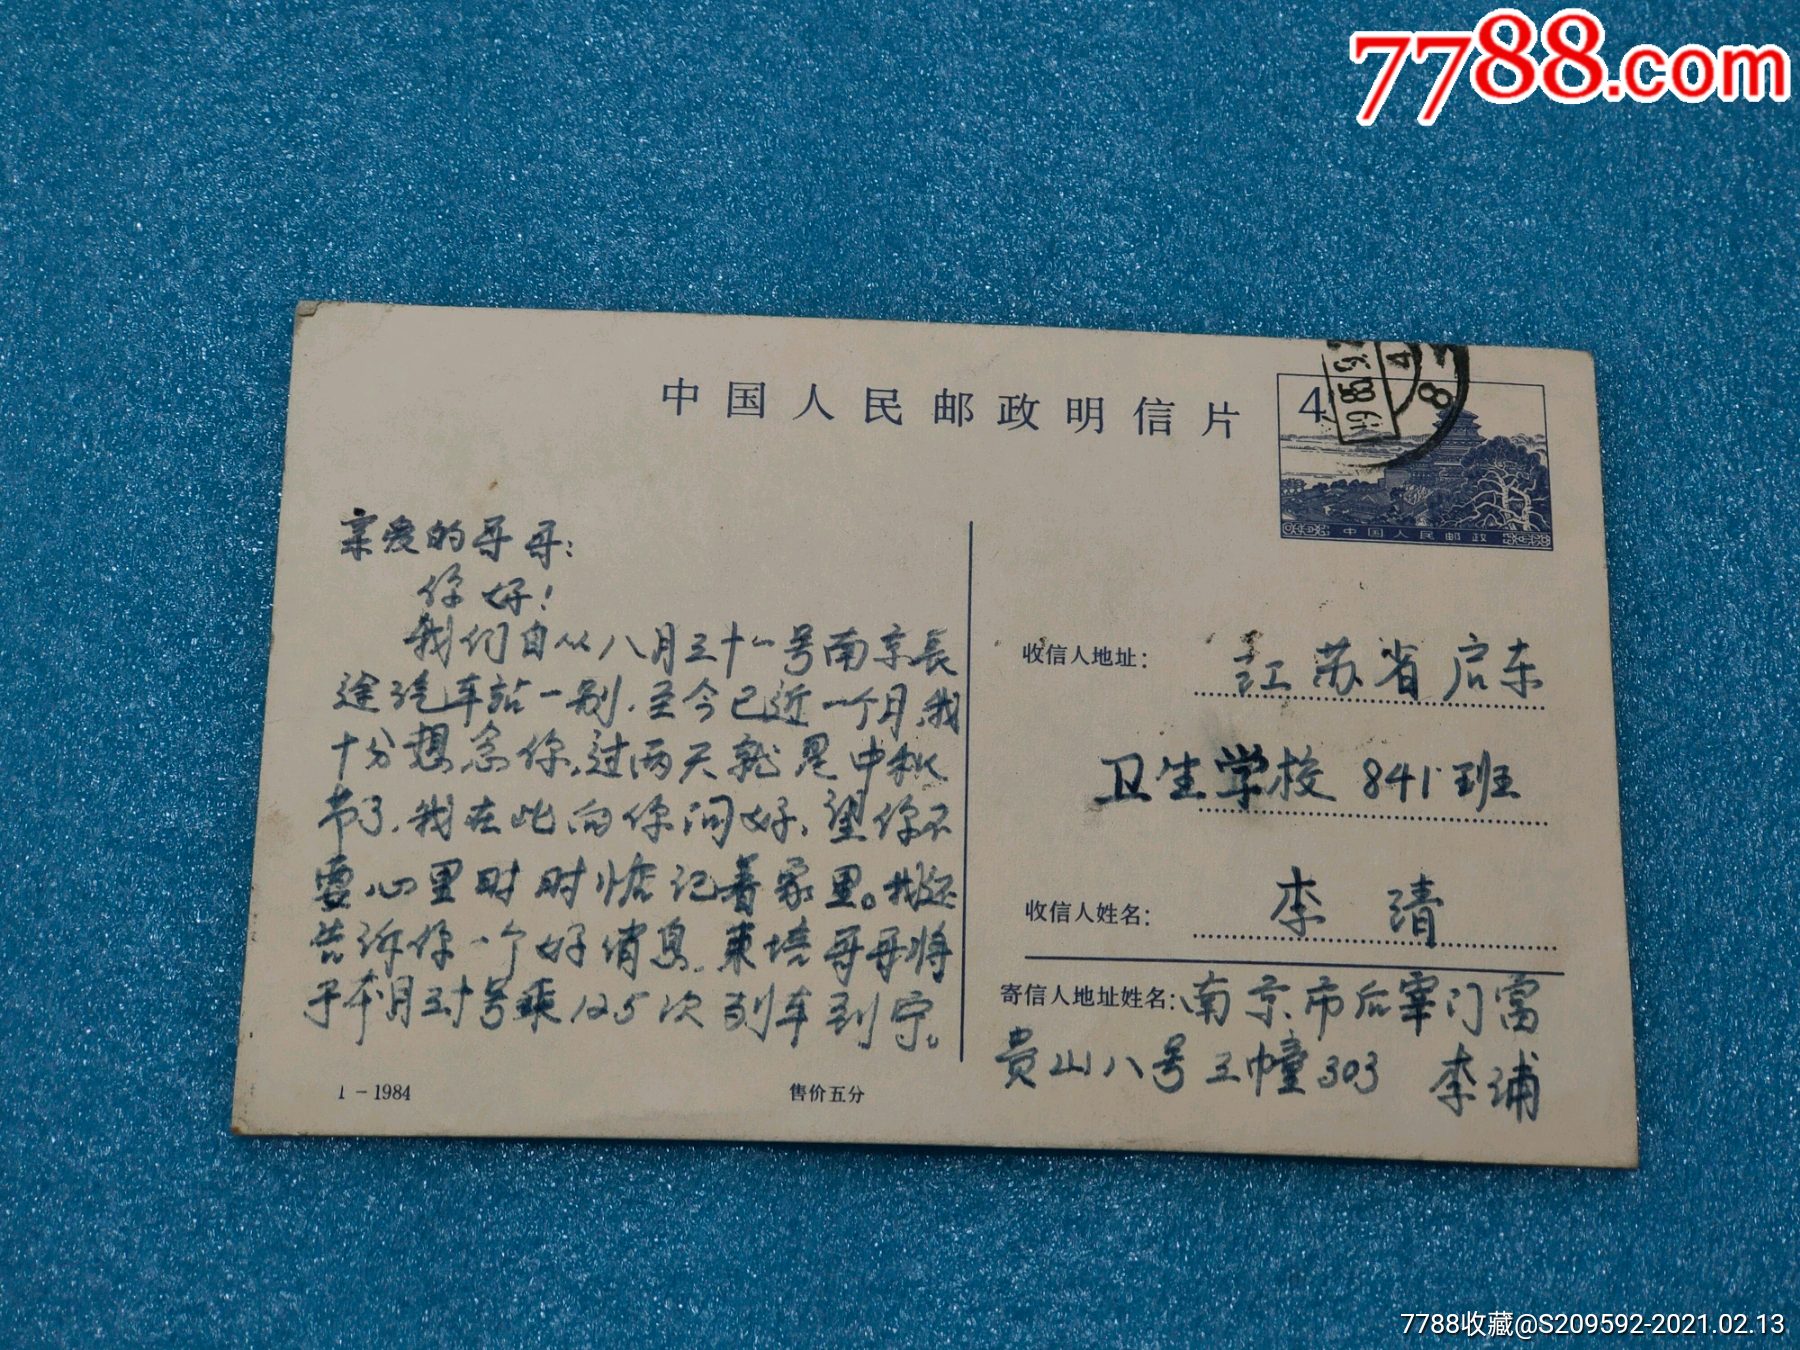 7788.com
中国人民邮政明信片
4
1985.9.2
4
8
中国人民邮政
亲爱的哥哥：
你好！
我们自从八月三十一号南京長
途汽车站一别，至今已近一个月，我
十分想念你，过两天就是中秋
节了，我在此向你问好，望你不
要心里时时惦记着家里。我还
告诉你一个好消息，東培哥哥将
于本月三十号乘125次列车到宁。
1-1984
售价五分
收信人地址：江苏省启东
卫生学校841班
收信人姓名：李清
寄信人地址姓名：南京市后宰门富
贵山八号三幢303 李浦
7788收藏@S209592-2021.02.13